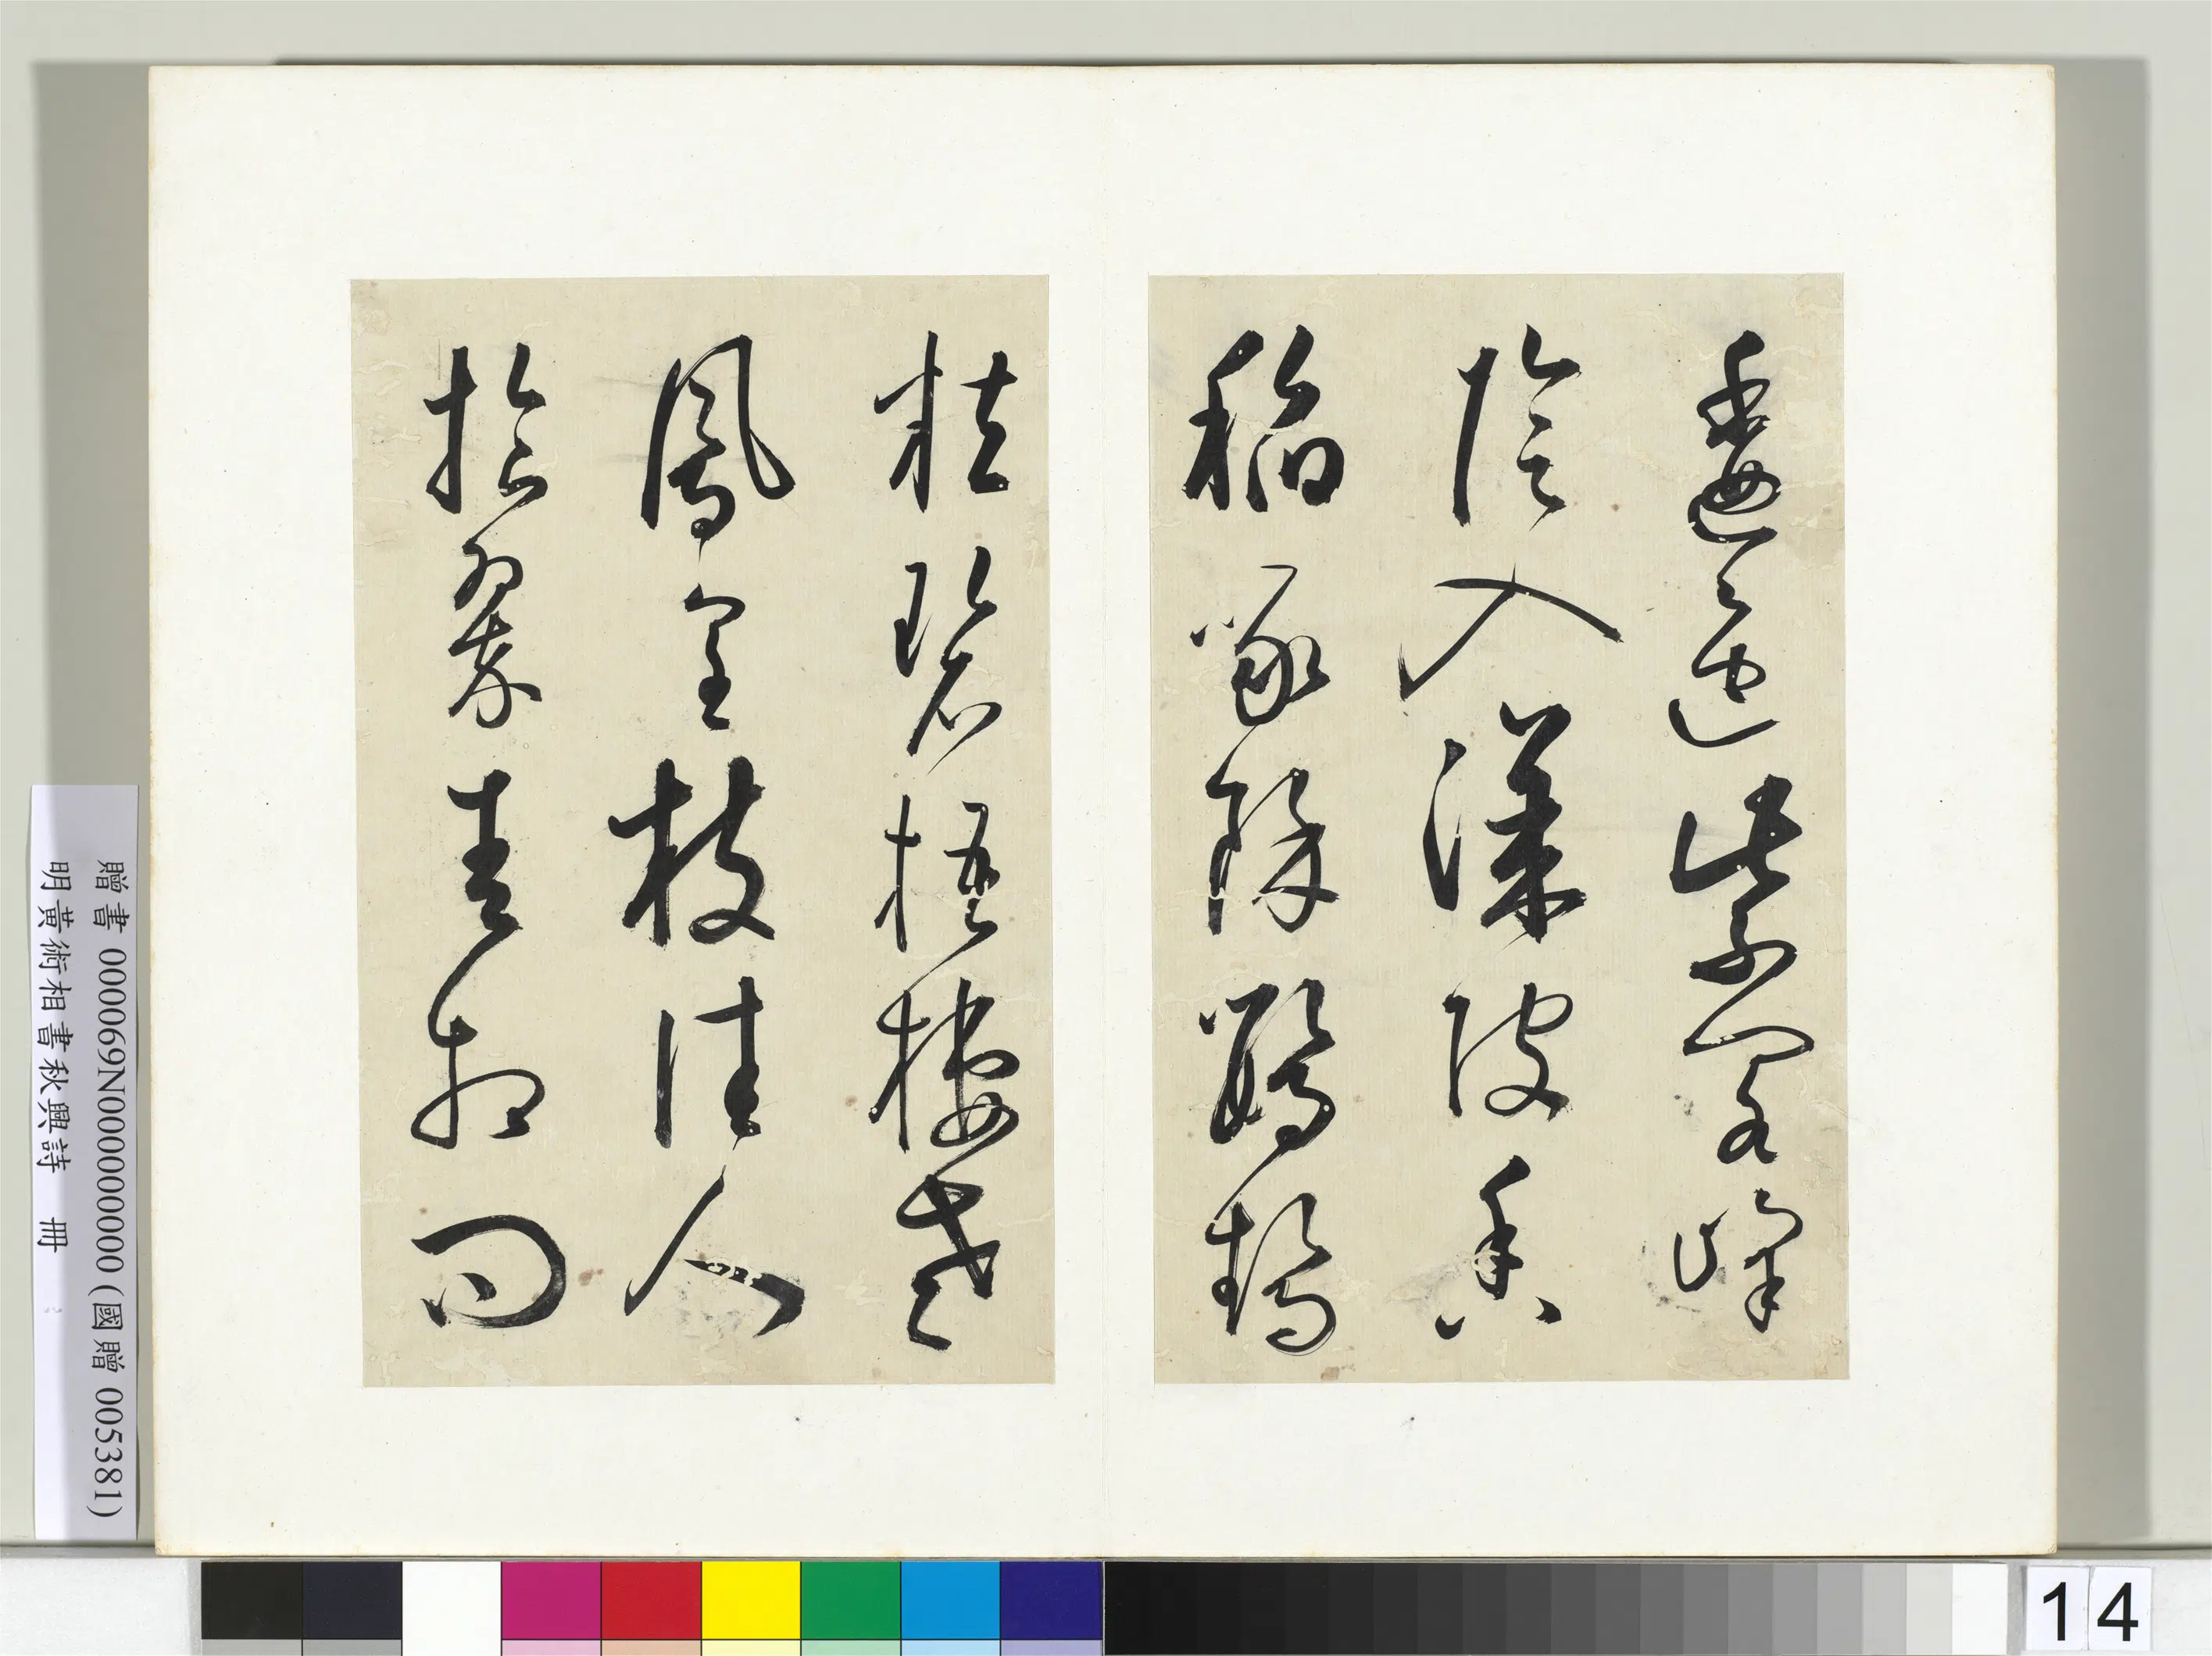 逶迤紫閣峰
陰入渼陂香
稻啄餘鸚鵡
粒碧梧棲老
鳳凰枝佳人
拾翠春相問
贈書 000069N000000000 (國贈 005381)
明黃術相書秋興詩 冊
14